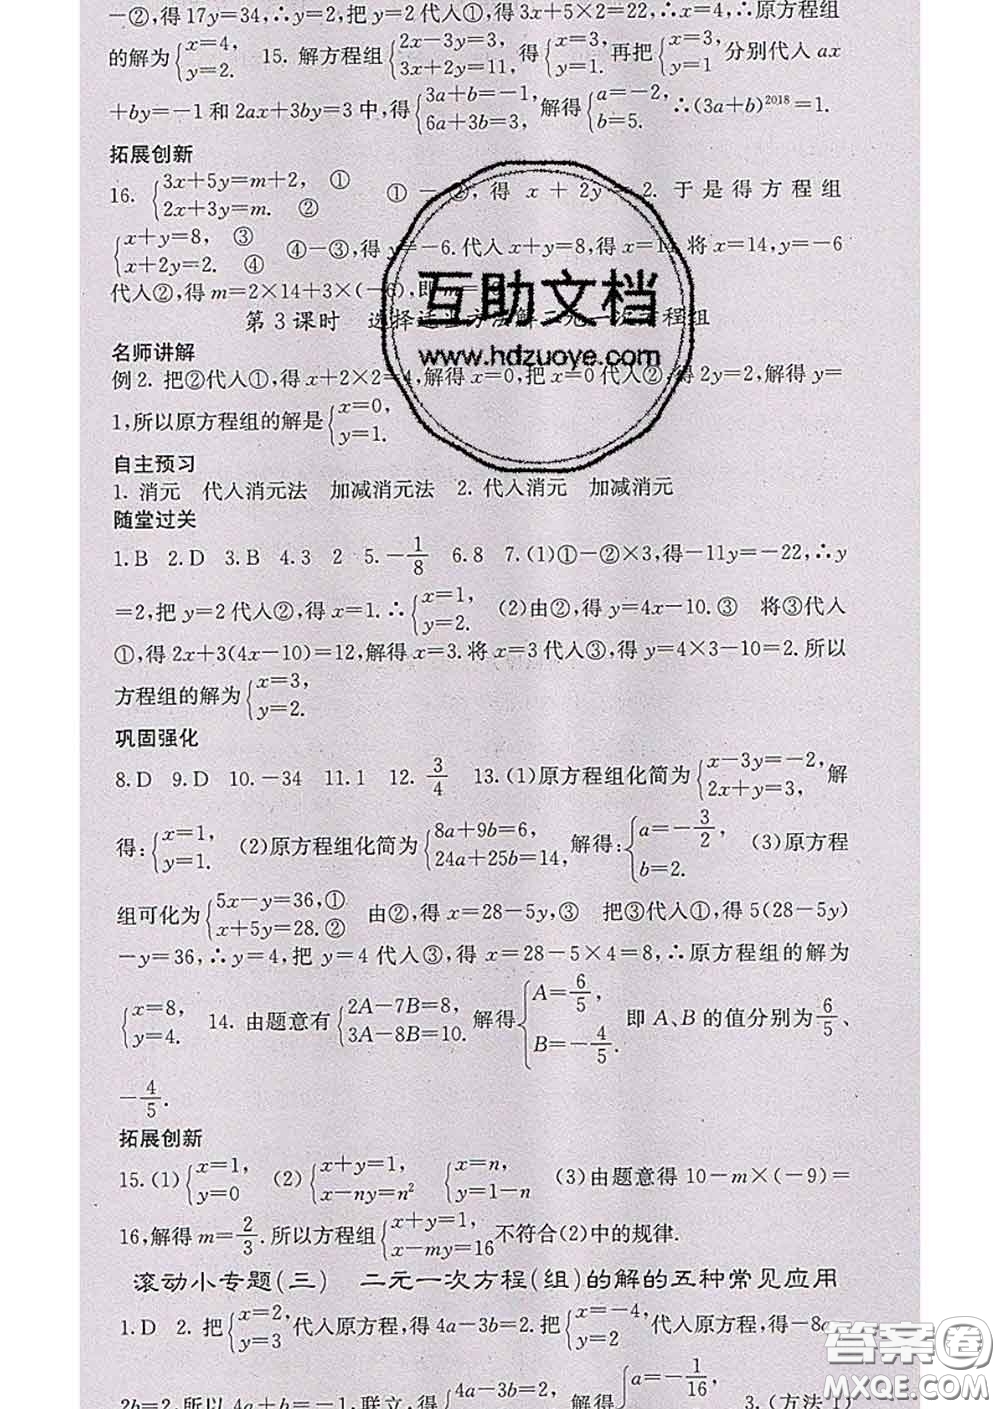 -②,得17y=34,∴y=2,把y=2代入①,得3x+5×2=22,∴x=4,∴原方程组
的解为{x=4, y=2. 15. 解方程组{2x-3y=3, 3x+2y=11, 得{x=3, y=1. 再把{x=3, y=1 分别代入ax
+by=-1和2ax+3by=3中,得{3a+b=-1, 6a+3b=3, 解得{a=-2, b=5. ∴(3a+b)²⁰¹⁸=1.
拓展创新
16. {3x+5y=m+2, ① 2x+3y=m. ② ①-②,得x+2y=2. 于是得方程组
{x+y=8, ③ x+2y=2. ④ ④-③,得y=-6.代入x+y=8,得x=14.将x=14,y=-6
代入②,得m=2×14+3×(-6),即m=
第3课时 选择适当方法解二元一次方程组
名师讲解
例2. 把②代入①,得x+2×2=4,解得x=0,把x=0代入②,得2y=2,解得y=
1,所以原方程组的解是{x=0, y=1.
自主预习
1. 消元 代入消元法 加减消元法 2. 代入消元 加减消元
随堂过关
1.B 2.D 3.B 4.3 2 5.-1/8 6.8 7.(1)①-②×3,得-11y=-22,∴y
=2,把y=2代入②,得x=1.∴{x=1, y=2. (2)由②,得y=4x-10.③ 将③代入
①,得2x+3(4x-10)=12,解得x=3.将x=3代入③,得y=4×3-10=2.所以
方程组的解为{x=3, y=2.
巩固强化
8.D 9.D 10.-34 11.1 12. 3/4 13.(1)原方程组化简为{x-3y=-2, 2x+y=3, 解
得:{x=1, y=1. (2)原方程组化简为{8a+9b=6, 24a+25b=14, 解得:{a=-3/2, b=2. (3)原方程
组可化为{5x-y=36,① x+5y=28.② 由②,得x=28-5y,③ 把③代入①,得5(28-5y)
-y=36,∴y=4,把y=4代入③,得x=28-5×4=8,∴原方程组的解为
{x=8, y=4. 14. 由题意有{2A-7B=8, 3A-8B=10. 解得{A=6/5, B=-4/5. 即A、B的值分别为6/5、
-4/5.
拓展创新
15.(1){x=1, y=0 (2){x+y=1, x-ny=n² {x=n, y=1-n (3)由题意得10-m×(-9)=
16,解得m=2/3.所以方程组{x+y=1, x-my=16 不符合(2)中的规律.
滚动小专题(三) 二元一次方程(组)的解的五种常见应用
1.D 2. 把{x=2, y=3 代入原方程,得4a-3b=2.把{x=-4, y=2 代入原方程,得-8a
2b=2.所以4a+b=1.联立,得{4a-3b=2, 解得{a=-1/16 3.(方法1)
互助文档
www.hdzuoye.com
答案圈
MXQE.COM